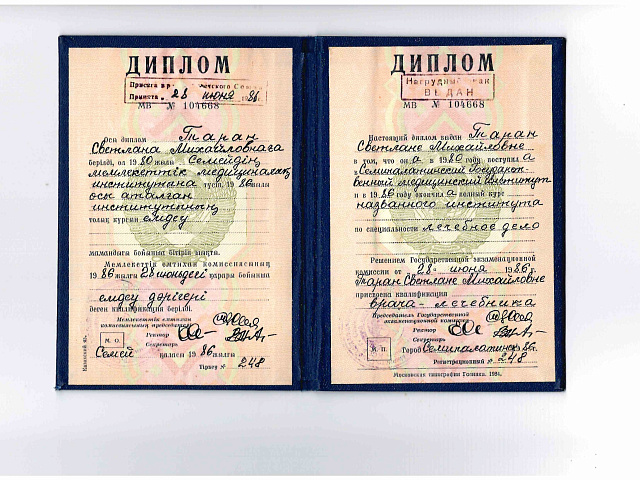 ДИПЛОМ
28 июня
МВ № 104668
Осы диплом Таран
Светлана Михайловнаға
берілді, ол 1980 жылы Семейдің
мемлекеттік медициналық
институтына түсіп, 1986 жылы
осы аталған
институттың
толық курсын емдеу
мамандығы бойынша бітіріп шықты.
Мемлекеттік емтихан комиссиясының
1986 жылғы 28 июньдегі қарары бойынша
емдеу дәрігері
деген квалификация берілді.
Мемлекеттік емтихан
комиссиясының председателі
Ректор
Секретарь
М. О.
Семей қаласы 1986 жылғы
Тіркеу № 248
ДИПЛОМ
Нагрудный знак
ВЫДАН
МВ № 104668
Настоящий диплом выдан Таран
Светлане Михайловне
в том, что она в 1980 году поступила в
Семипалатинский Государст-
венный медицинский институт
и в 1986 году окончила полный курс
названного института
по специальности лечебное дело
Решением Государственной экзаменационной
комиссии от 28 июня 1986 г.
Таран Светлане Михайловне
присвоена квалификация
врача-лечебника
Председатель Государственной
экзаменационной комиссии
Ректор
Секретарь
М. П.
Город Семипалатинск 86г.
Регистрационный № 248
Московская типография Гознака. 1984.